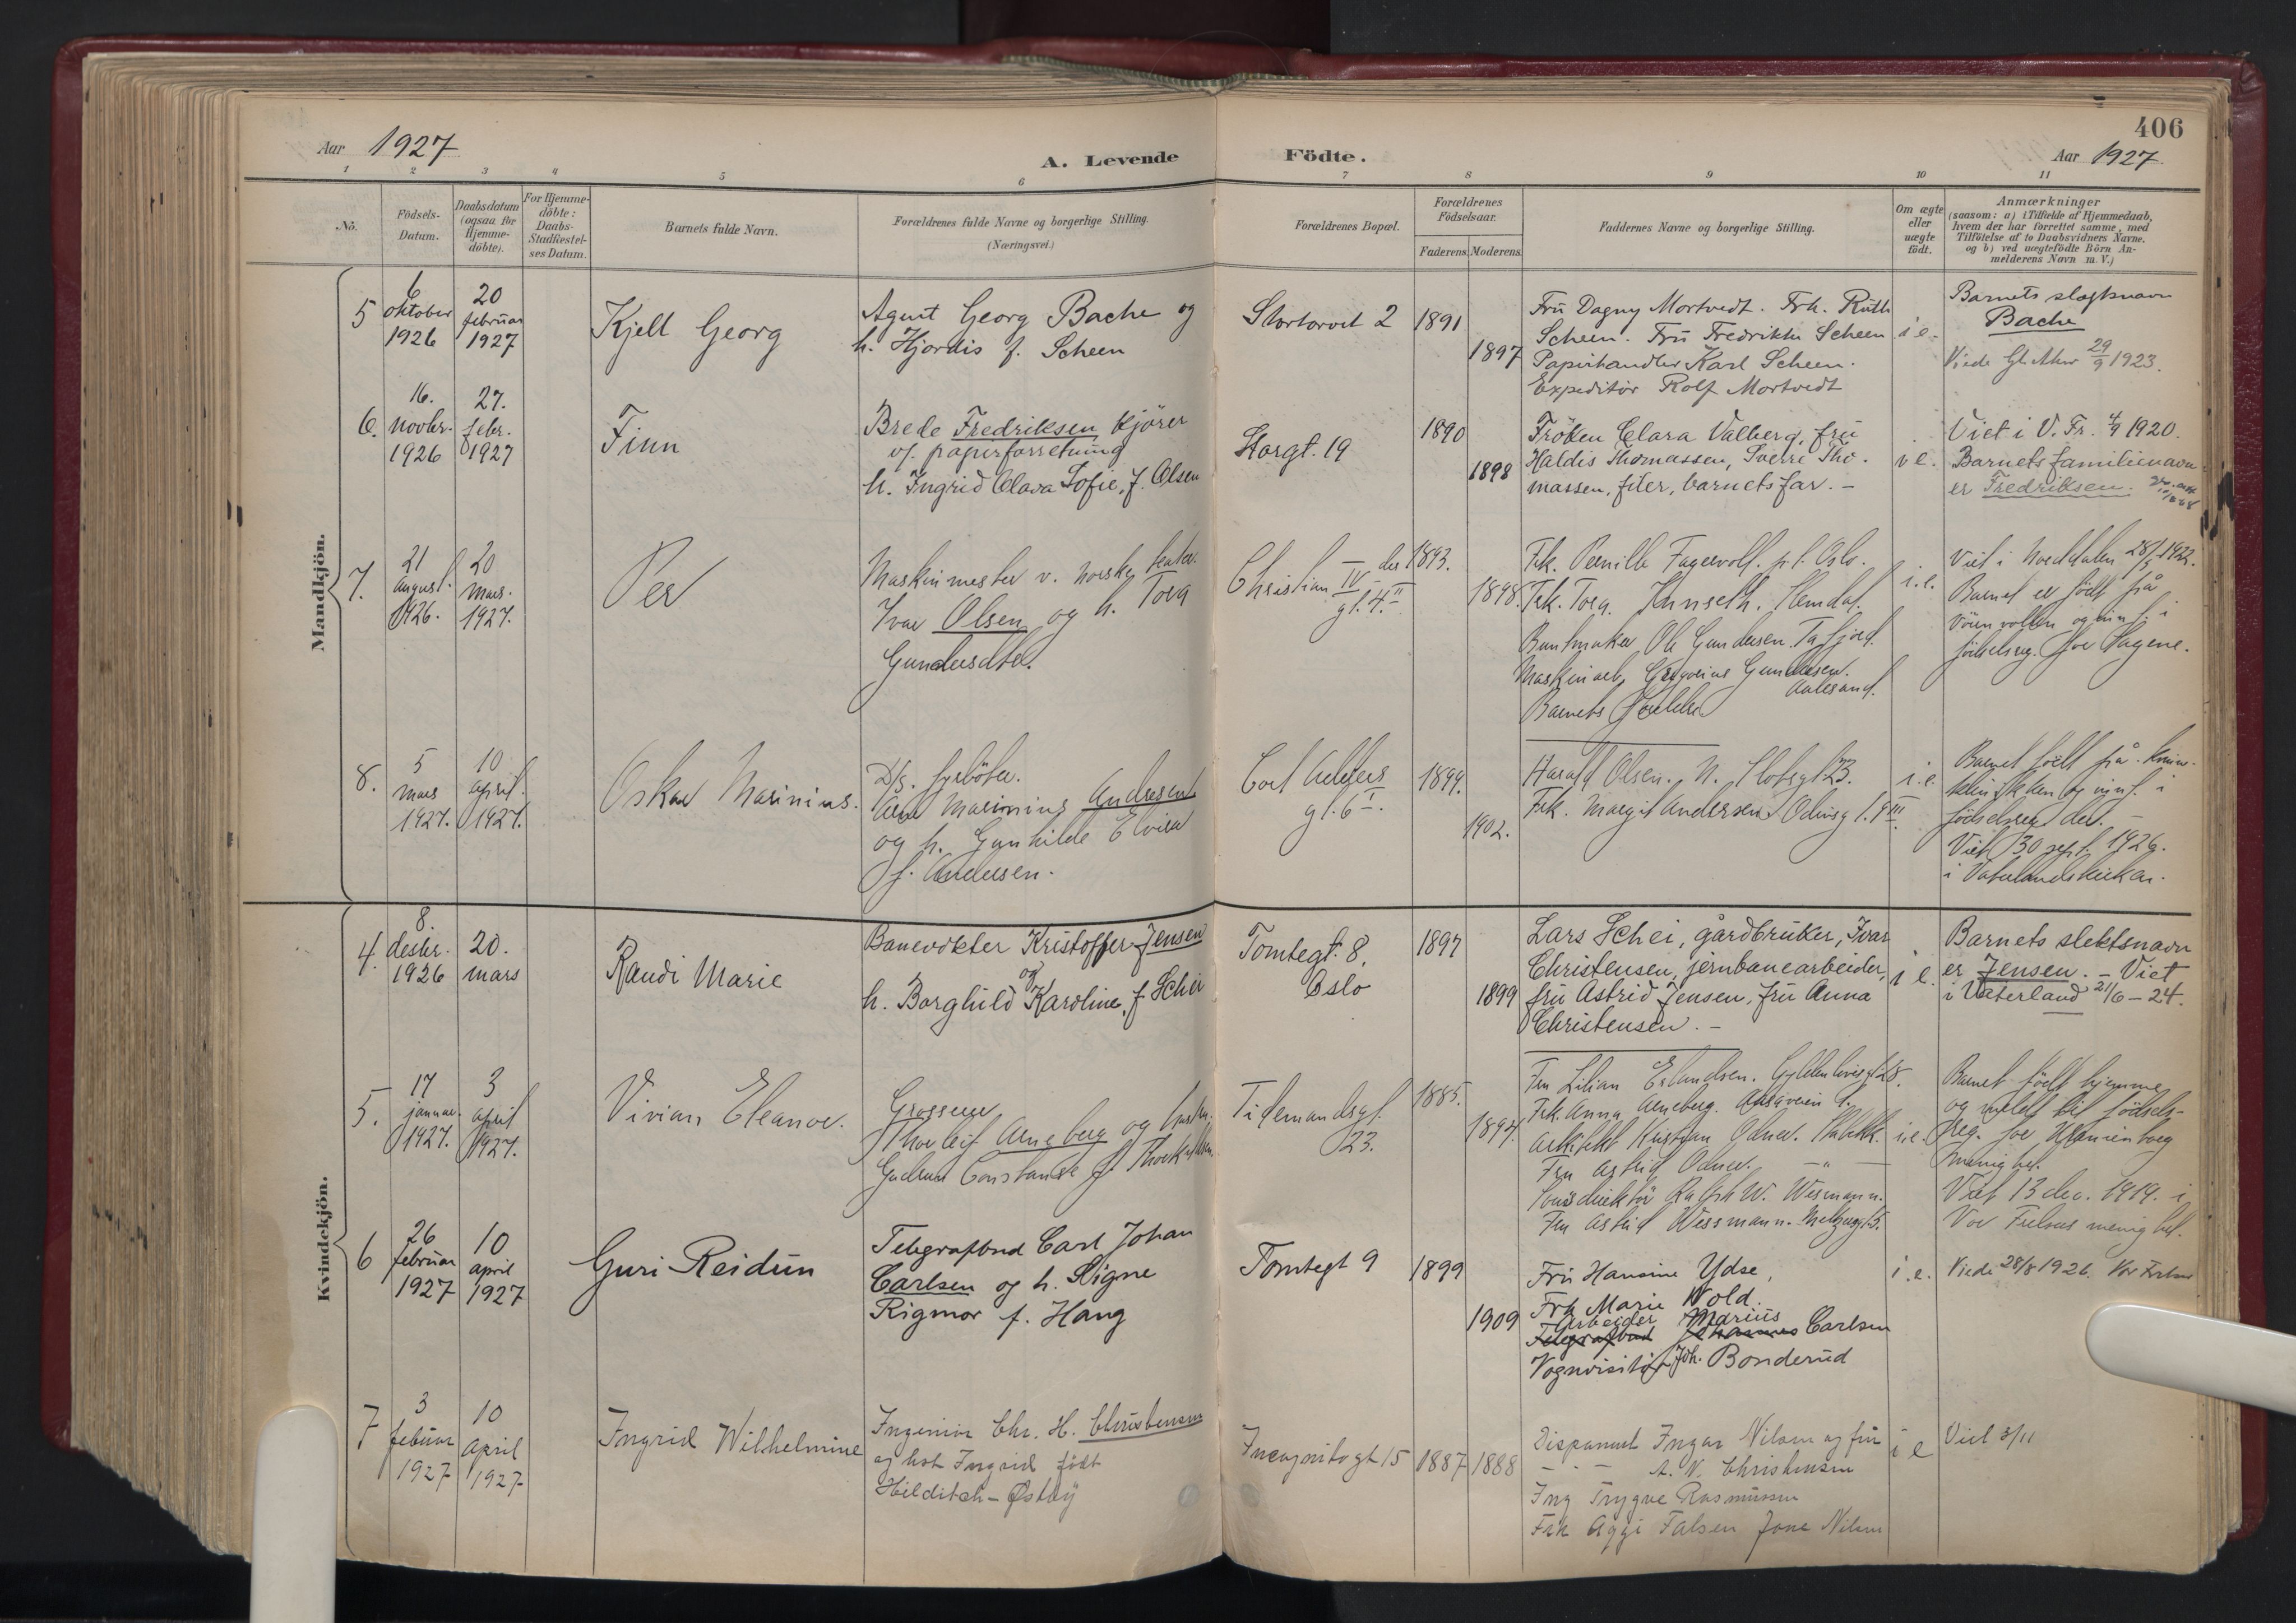 406
Aar 1927
A. Levende Födte.
Aar 1927.
1 2 3 4 5 6 7 8 9 10 11
No.
Födsels-
Datum.
Daabsdatum
(ogsaa for
Hjemme-
döbte).
For Hjemme-
döbte:
Daabs-
Stadfæstel-
ses Datum.
Barnets fulde Navn.
Forældrenes fulde Navne og borgerlige Stilling.
(Næringsvei.)
Forældrenes Bopæl.
Forældrenes
Födselsaar.
Faderens. Moderens.
Faddernes Navne og borgerlige Stilling.
Om ægte
eller
uægte
födt.
Anmærkninger
(saasom: a) i Tilfælde af Hjemmedaab,
hvem der har forrettet samme, med
Tilföielse af to Daabsvidners Navne.
og b) ved uægtefödte Börn An-
melderens Navn m. V.)
Mandkjön.
5
6
oktober
1926
20
februar
1927
Kjell Georg
Agent Georg Bache og
h. Hjordis f. Scheen
Stortorvet 2
1891
1897
Frü Dagny Mortvedt. Frk. Rüth
Scheen. Frü Fredrikke Scheen
Papirhandler Karl Scheen.
Expeditör Rolf Mortvedt
i e.
Barnets slegtsnavn
Bache
Viede Gl. Aker 29/9 1923.
6.
16.
novbr.
1926
27.
febr.
1927
Finn
Brede Fredriksen kjörer
v/. papirforretning
h. Ingrid Clara Sofie, f. Olsen
Storgt. 19
1890
1898
Fröken Clara Valberg, frü
Haldis Thomassen, Sverre Tho-
massen, filer, barnets far. -
i e.
Viet i V. Fr. 4/9 1920.
Barnets familienavn
er Fredriksen.
7.
21
august.
1926.
20
mars.
1927.
Per
Maskinmester v. norske
Ivar Olsen og h. Tora
Gundersdtr.
Christian IV der
gt. 4 II
1893.
1898.
Frk. Pernille p. t. Oslo.
Frk. Tora
Buntmaker Ole Gundersen.
Maskinarb. Gregorius Gundersen.
Aalesund.
Barnets Forældre
i. e.
Viet i 28/5 1922.
Barnet er födt på
Vöienvollen og innf. i
födselsreg. for Sagene.
8.
5
mars
1927.
10
april.
1927.
Oskar Marinius.
D/s. fyrböter.
Marinius Andresen
og h. Gunhilde Elvira
f. Andersen.
Carl Adlers
gt. 6 I.
1899.
1902.
Harald Olsen. N. Slotsgt 23.
Frk. Margit Andersen. Odinsgt. 9 III.
i. e.
Barnet födt på kvinne-
klinikken og innf. i
födselsreg der. -
Viet 30 sept. 1926.
i Vaterlands kirke.
Kvindekjön.
4.
8.
desbr.
1926
20.
mars
Randi Marie
Banevokter Kristoffer Jensen
og
h. Borghild Karoline, f. Schei
Tomtegt. 8,
Oslo
1897
1899
Lars Schei, gårdbrüker, Ivar
Christensen, jernbanearbeider,
frü Astrid Jensen, frü Anna
Christensen. -
i e.
Barnets slektsnavn
er Jensen. - Viet
i Vaterland 21/6 - 24.
5.
17
januar.
1927.
3
april
1927.
Vivian Eleanor.
Grosserer
Thorleif Arneberg og hustru
Gudrun Constance f.
Tidemandsgt.
23.
1885.
1897.
Fru Lilian Erlandsen.
Frk. Anna Arneberg.
Arkitekt Kristian
Fru Astrid
Ralph W. Wesmann.
Fru Astrid Wessmann.
i. e.
Barnet födt hjemme
og meldt til födsels-
reg. for Uranienborg
menighet.
Viet 13 dec. 1919. i
Vor Frelsers menighet.
6
26
februar
1927
10
april
1927
Guri Reidün
Telegrafbud Carl Johan
Carlsen og h. Signe
Rigmor f. Haug
Tomtegt 9
1899
1909
Frü Hansine Ydse,
Frk Marie Wold.
Arbeider Marius
Telegrafbud Johannes Carlsen
Vognvisitör Joh. Bonderud
i. e.
Viede 28/8 1926. Vor Frelser
7
3
februar
1927
10
april
1927
Ingrid Wilhelmine
Ingeniør Chr. H. Christensen
og hst Ingrid født
Hilditch-Østby
Incognitogt 15
1887
1888
Disponent Ingar Nilsen og frü
- " - A. W. Christensen
Ing Trygve Rasmussen
Frk Aggi Falsen Jone Nilsen
i e
Viet 3/11